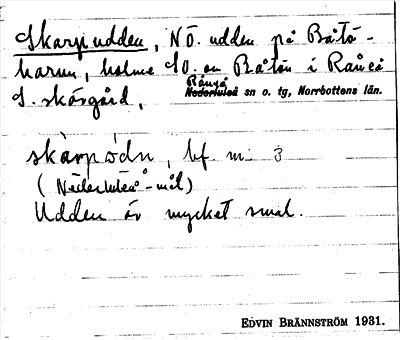 Skarpudden, NÖ. udden på Båtö-
harun, holme SO. om Båtön i Råneå
S. skärgård,
Råneå
Nederluleå sn o. tg, Norrbottens län.
skàrpòdn, bf. m. 3
(Nederluleå-mål)
Udden är mycket smal.
EDVIN BRÄNNSTRÖM 1931.